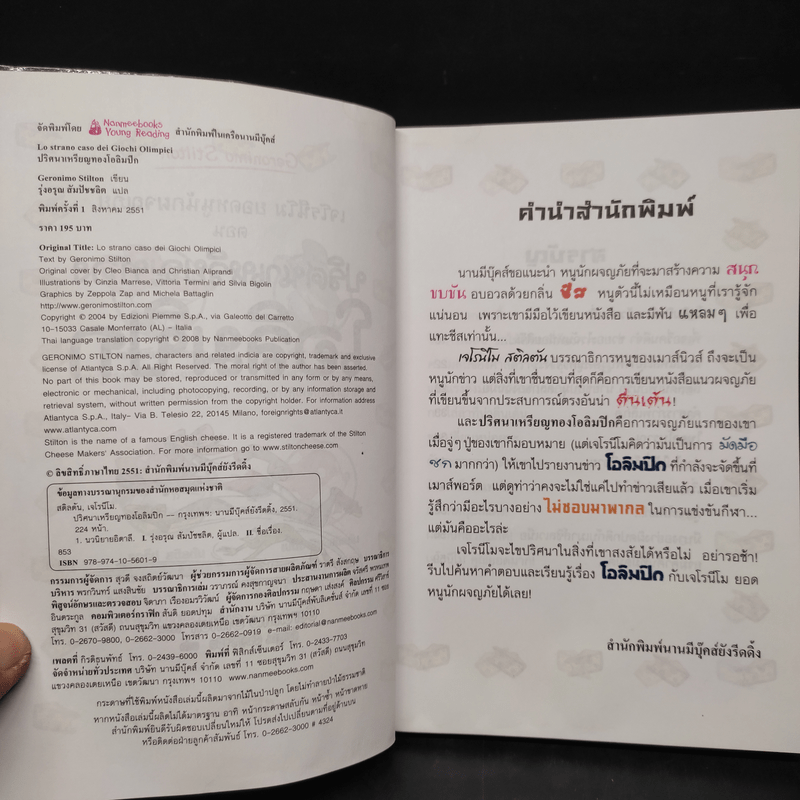 จัดพิมพ์โดย Nanmeebooks Young Reading สำนักพิมพ์ในเครือนานมีบุ๊คส์
Lo strano caso dei Giochi Olimpici
ปริศนาเหรียญทองโอลิมปิก
Geronimo Stilton เขียน
รุ่งอรุณ สัมปัชชลิต แปล
พิมพ์ครั้งที่ 1 สิงหาคม 2551
ราคา 195 บาท
Original Title: Lo strano caso dei Giochi Olimpici
Text by Geronimo Stilton
Original cover by Cleo Bianca and Christian Aliprandi
Illustrations by Cinzia Marrese, Vittoria Termini and Silvia Bigolin
Graphics by Zeppola Zap and Michela Battaglin
http://www.geronimostilton.com
Copyright © 2004 by Edizioni Piemme S.p.A, via Galeotto del Carretto
10-15033 Casale Monferrato (AL) – Italia
Thai language translation copyright © 2008 by Nanmeebooks Publication
GERONIMO STILTON names, characters and related indicia are copyright, trademark and exclusive
license of Atlantyca S.p.A. All Right Reserved. The moral right of the author has been asserted.
No part of this book may be stored, reproduced or transmitted in any form or by any means,
electronic or mechanical, including photocopying, recording, or by any information storage and
retrieval system, without written permission from the copyright holder. For information address
Atlantyca S.p.A., Italy– Via B. Telesio 22, 20145 Milano, foreignrights@atlantyca.it
www.atlantyca.com
Stilton is the name of a famous English cheese. It is a registered trademark of the Stilton
Cheese Makers' Association. For more information go to www.stiltoncheese.com
© ลิขสิทธิ์ภาษาไทย 2551: สำนักพิมพ์นานมีบุ๊คส์ยังรีดดิ้ง
ข้อมูลทางบรรณานุกรมของสำนักหอสมุดแห่งชาติ
สติลตัน, เจโรนีโม.
ปริศนาเหรียญทองโอลิมปิก — กรุงเทพฯ: นานมีบุ๊คส์ยังรีดดิ้ง, 2551.
224 หน้า.
1. นวนิยายอิตาลี. I. รุ่งอรุณ สัมปัชชลิต, ผู้แปล. II. ชื่อเรื่อง.
853
ISBN 978-974-10-5601-9
กรรมการผู้จัดการ สุวดี จงสถิตย์วัฒนา ผู้ช่วยกรรมการผู้จัดการสายผลิตภัณฑ์ ราตรี
บริหาร พรกวินทร์ แสงสินชัย บรรณาธิการเล่ม วราภรณ์ คงสุขกาญจนา ประสานงานการผลิต
พิสูจน์อักษรและตรวจสอบ จิดาภา เรืองอมรวิวัฒน์ ผู้จัดการกองศิลปกรรม กฤษดา เส่งสงค์ ศิลปกรรม
อินตระกูล คอมพิวเตอร์กราฟิก สันติ ยอดปทุม สำนักงาน บริษัท นานมีบุ๊คส์พับลิเคชั่นส์ จำกัด เลขที่ 11 ซอย
สุขุมวิท 31 (สวัสดี) ถนนสุขุมวิท แขวงคลองเตยเหนือ เขตวัฒนา กรุงเทพฯ 10110
โทร. 0-2670-9800, 0-2662-3000 โทรสาร 0-2662-0919 e-mail: editorial@nanmeebooks.com
เพลตที่ กิรติธนพัทธ์ โทร. 0-2439-6000 พิมพ์ที่ ฟิสิกส์เซ็นเตอร์ โทร. 0-2433-7703
จัดจำหน่ายทั่วประเทศ บริษัท นานมีบุ๊คส์ จำกัด เลขที่ 11 ซอยสุขุมวิท 31 (สวัสดี) ถนนสุขุมวิท
แขวงคลองเตยเหนือ เขตวัฒนา กรุงเทพฯ 10110 www.nanmeebooks.com
กระดาษที่ใช้พิมพ์หนังสือเล่มนี้ผลิตมาจากไม้ในป่าปลูก โดยไม่ทำลายป่าไม้ธรรมชาติ
หากหนังสือเล่มนี้ผลิตไม่ได้มาตรฐาน อาทิ หน้ากระดาษสลับกัน หน้าซ้ำ หน้าขาดหาย
สำนักพิมพ์ยินดีรับผิดชอบเปลี่ยนใหม่ให้ โปรดส่งไปเปลี่ยนตามที่อยู่ด้านบน
หรือติดต่อฝ่ายลูกค้าสัมพันธ์ โทร. 0-2662-3000 # 4324
คำนำสำนักพิมพ์
นานมีบุ๊คส์ขอแนะนำ หนูนักผจญภัยที่จะมาสร้างความ สนุก
ขบขัน อบอวลด้วยกลิ่น ชีส หนูตัวนี้ไม่เหมือนหนูที่เรารู้จัก
แน่นอน เพราะเขามีมือไว้เขียนหนังสือ และมีฟัน แหลมๆ เพื่อ
แทะชีสเท่านั้น...
เจโรนีโม สติลตัน บรรณาธิการหนูของเมาส์นิวส์ ถึงจะเป็น
หนูนักข่าว แต่สิ่งที่เขาชื่นชอบที่สุดก็คือการเขียนหนังสือแนวผจญภัย
ที่เขียนขึ้นจากประสบการณ์ตรงอันน่า ตื่นเต้น!
และปริศนาเหรียญทองโอลิมปิกคือการผจญภัยแรกของเขา
เมื่อจู่ๆ ปู่ของเขาก็มอบหมาย (แต่เจโรนีโมคิดว่ามันเป็นการ มัดมือ
ชก มากกว่า) ให้เขาไปรายงานข่าว โอลิมปิก ที่กำลังจะจัดขึ้นที่
เมาส์พอร์ต แต่ดูท่าว่าคงจะไม่ใช่แค่ไปทำข่าวเสียแล้ว เมื่อเขาเริ่ม
รู้สึกว่ามีอะไรบางอย่าง ไม่ชอบมาพากล ในการแข่งขันกีฬา...
แต่มันคืออะไรล่ะ
เจโรนีโมจะไขปริศนาในสิ่งที่เขาสงสัยได้หรือไม่ อย่ารอช้า!
รีบไปค้นหาคำตอบและเรียนรู้เรื่อง โอลิมปิก กับเจโรนีโม ยอด
หนูนักผจญภัยได้เลย!
สำนักพิมพ์นานมีบุ๊คส์ยังรีดดิ้ง